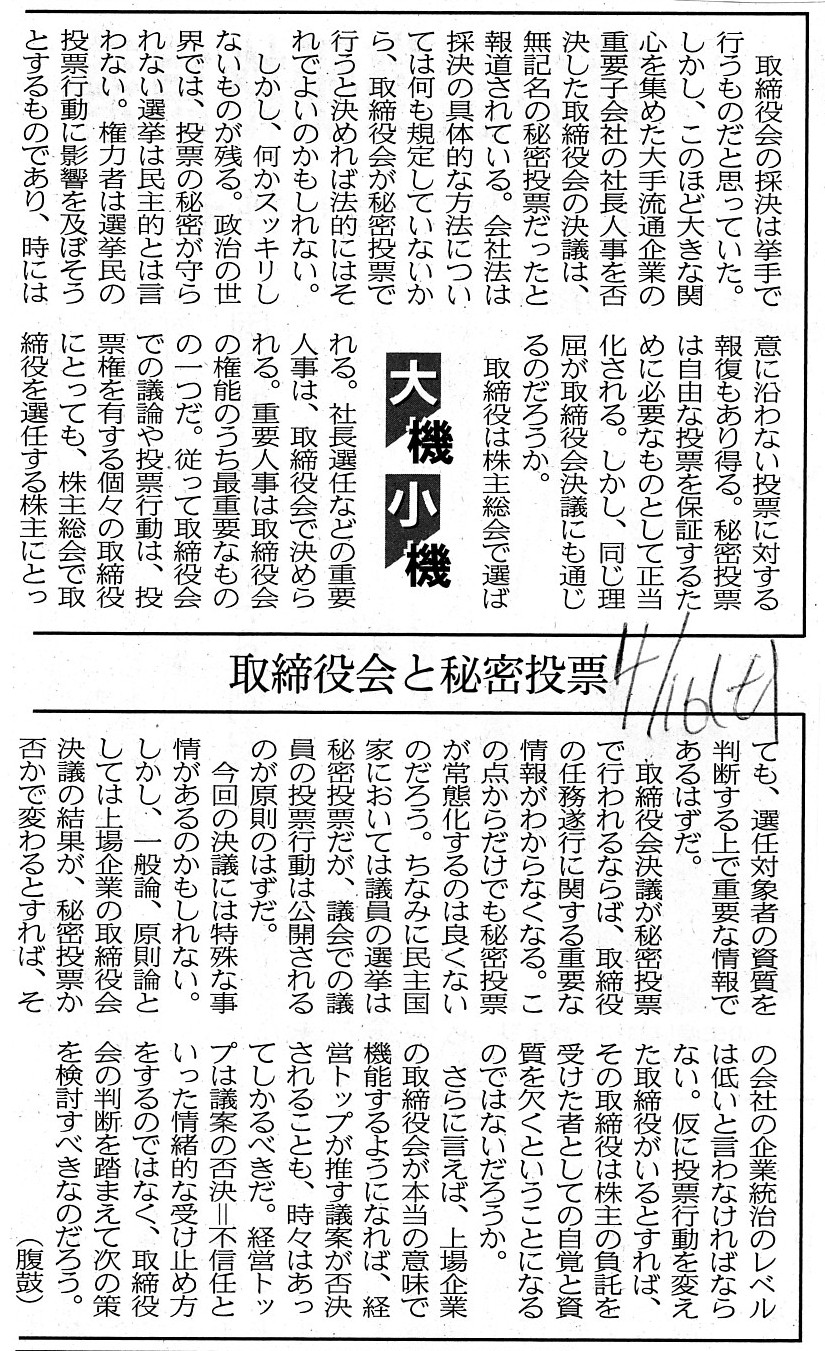 取締役会の採決は挙手で
行うものだと思っていた。
しかし、このほど大きな関
心を集めた大手流通企業の
重要子会社の社長人事を否
決した取締役会の決議は、
無記名の秘密投票だったと
報道されている。会社法は
採決の具体的な方法につい
ては何も規定していないか
ら、取締役会が秘密投票で
行うと決めれば法的にはそ
れでよいのかもしれない。
しかし、何かスッキリし
ないものが残る。政治の世
界では、投票の秘密が守ら
れない選挙は民主的とは言
わない。権力者は選挙民の
投票行動に影響を及ぼそう
とするものであり、時には
意に沿わない投票に対する
報復もあり得る。秘密投票
は自由な投票を保証するた
めに必要なものとして正当
化される。しかし、同じ理
屈が取締役会決議にも通じ
るのだろうか。
取締役は株主総会で選ば
大機小機
れる。社長選任などの重要
人事は、取締役会で決めら
れる。重要人事は取締役会
の権能のうち最重要なもの
の一つだ。従って取締役会
での議論や投票行動は、投
票権を有する個々の取締役
にとっても、株主総会で取
締役を選任する株主にとっ
取締役会と秘密投票
4/16(土)
ても、選任対象者の資質を
判断する上で重要な情報で
あるはずだ。
取締役会決議が秘密投票
で行われるならば、取締役
の任務遂行に関する重要な
情報がわからなくなる。こ
の点からだけでも秘密投票
が常態化するのは良くない
のだろう。ちなみに民主国
家においては議員の選挙は
秘密投票だが、議会での議
員の投票行動は公開される
のが原則のはずだ。
今回の決議には特殊な事
情があるのかもしれない。
しかし、一般論、原則論と
しては上場企業の取締役会
決議の結果が、秘密投票か
否かで変わるとすれば、そ
の会社の企業統治のレベル
は低いと言わなければなら
ない。仮に投票行動を変え
た取締役がいるとすれば、
その取締役は株主の負託を
受けた者としての自覚と資
質を欠くということになる
のではないだろうか。
さらに言えば、上場企業
の取締役会が本当の意味で
機能するようになれば、経
営トップが推す議案が否決
されることも、時々はあっ
てしかるべきだ。経営トッ
プは議案の否決＝不信任と
いった情緒的な受け止め方
をするのではなく、取締役
会の判断を踏まえて次の策
を検討すべきなのだろう。
（腹鼓）